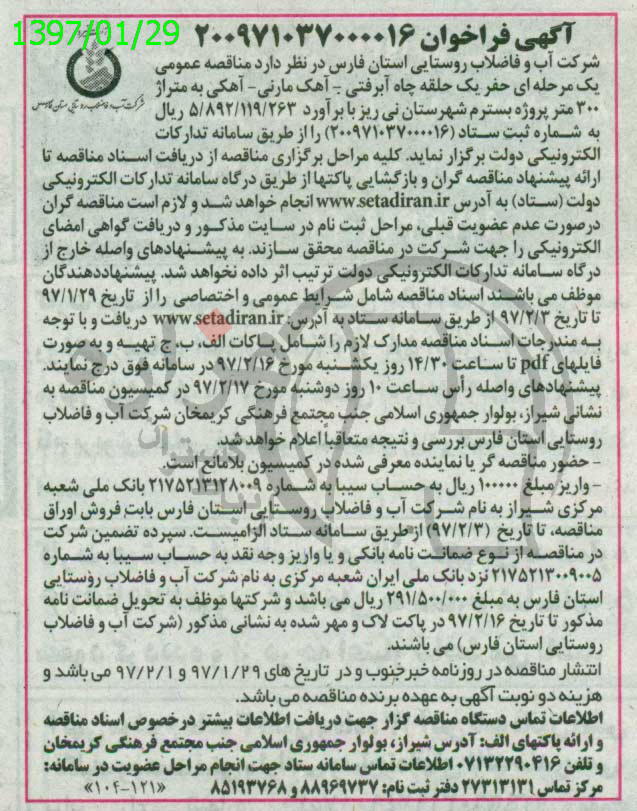 1397/01/29
آگهی فراخوان ۲۰۰۹۷۱۰۳۷۰۰۰۰۱۶
شرکت آب و فاضلاب روستایی استان فارس در نظر دارد مناقصه عمومی
یک مرحله ای حفر یک حلقه چاه آبرفتی - آهک مارنی- آهکی به متراژ
۳۰۰ متر پروژه بسترم شهرستان نی ریز با برآورد ۵/۸۹۲/۱۱۹/۲۶۳ ریال
به شماره ثبت ستاد (۲۰۰۹۷۱۰۳۷۰۰۰۰۱۶) را از طریق سامانه تدارکات
الکترونیکی دولت برگزار نماید. کلیه مراحل برگزاری مناقصه از دریافت اسناد مناقصه تا
ارائه پیشنهاد مناقصه گران و بازگشایی پاکتها از طریق درگاه سامانه تدارکات الکترونیکی
دولت (ستاد) به آدرس www.setadiran.ir انجام خواهد شد و لازم است مناقصه گران
درصورت عدم عضویت قبلی، مراحل ثبت نام در سایت مذکور و دریافت گواهی امضای
الکترونیکی را جهت شرکت در مناقصه محقق سازند. به پیشنهادهای واصله خارج از
درگاه سامانه تدارکات الکترونیکی دولت ترتیب اثر داده نخواهد شد. پیشنهاددهندگان
موظف می باشند اسناد مناقصه شامل شرایط عمومی و اختصاصی را از تاریخ ۹۷/۱/۲۹
تا تاریخ ۹۷/۲/۳ از طریق سامانه ستاد به آدرس: www.setadiran.ir دریافت و با توجه
به مندرجات اسناد مناقصه مدارک لازم را شامل پاکات الف، ب، ج تهیه و به صورت
فایلهای pdf تا ساعت ۱۴/۳۰ روز یکشنبه مورخ ۹۷/۲/۱۶ در سامانه فوق درج نمایند.
پیشنهادهای واصله رأس ساعت ۱۰ روز دوشنبه مورخ ۹۷/۲/۱۷ در کمیسیون مناقصه به
نشانی شیراز، بولوار جمهوری اسلامی جنب مجتمع فرهنگی کریمخان شرکت آب و فاضلاب
روستایی استان فارس بررسی و نتیجه متعاقباً اعلام خواهد شد.
- حضور مناقصه گر یا نماینده معرفی شده در کمیسیون بلامانع است.
- واریز مبلغ ۱۰۰۰۰۰ ریال به حساب سیبا به شماره ۲۱۷۵۲۱۳۱۲۸۰۰۹ بانک ملی شعبه
مرکزی شیراز به نام شرکت آب و فاضلاب روستایی استان فارس بابت فروش اوراق
مناقصه، تا تاریخ (۹۷/۲/۳) از طریق سامانه ستاد الزامیست. سپرده تضمین شرکت
در مناقصه از نوع ضمانت نامه بانکی و یا واریز وجه نقد به حساب سیبا به شماره
۲۱۷۵۲۱۳۰۰۹۰۰۵ نزد بانک ملی ایران شعبه مرکزی به نام شرکت آب و فاضلاب روستایی
استان فارس به مبلغ ۲۹۱/۵۰۰/۰۰۰ ریال می باشد و شرکتها موظف به تحویل ضمانت نامه
مذکور تا تاریخ ۹۷/۲/۱۶ در پاکت لاک و مهر شده به نشانی مذکور (شرکت آب و فاضلاب
روستایی استان فارس) می باشند.
انتشار مناقصه در روزنامه خبرجنوب و در تاریخ های ۹۷/۱/۲۹ و ۹۷/۲/۱ می باشد و
هزینه دو نوبت آگهی به عهده برنده مناقصه می باشد.
اطلاعات تماس دستگاه مناقصه گزار جهت دریافت اطلاعات بیشتر درخصوص اسناد مناقصه
و ارائه پاکتهای الف: آدرس شیراز، بولوار جمهوری اسلامی جنب مجتمع فرهنگی کریمخان
و تلفن ۰۷۱۳۲۲۹۰۴۱۶ اطلاعات تماس سامانه ستاد جهت انجام مراحل عضویت در سامانه:
مرکز تماس ۲۷۳۱۳۱۳۱ دفتر ثبت نام: ۸۸۹۶۹۷۳۷ و ۸۵۱۹۳۷۶۸ «۱۰۴-۱۲۱»
شرکت آب و فاضلاب روستایی استان فارس